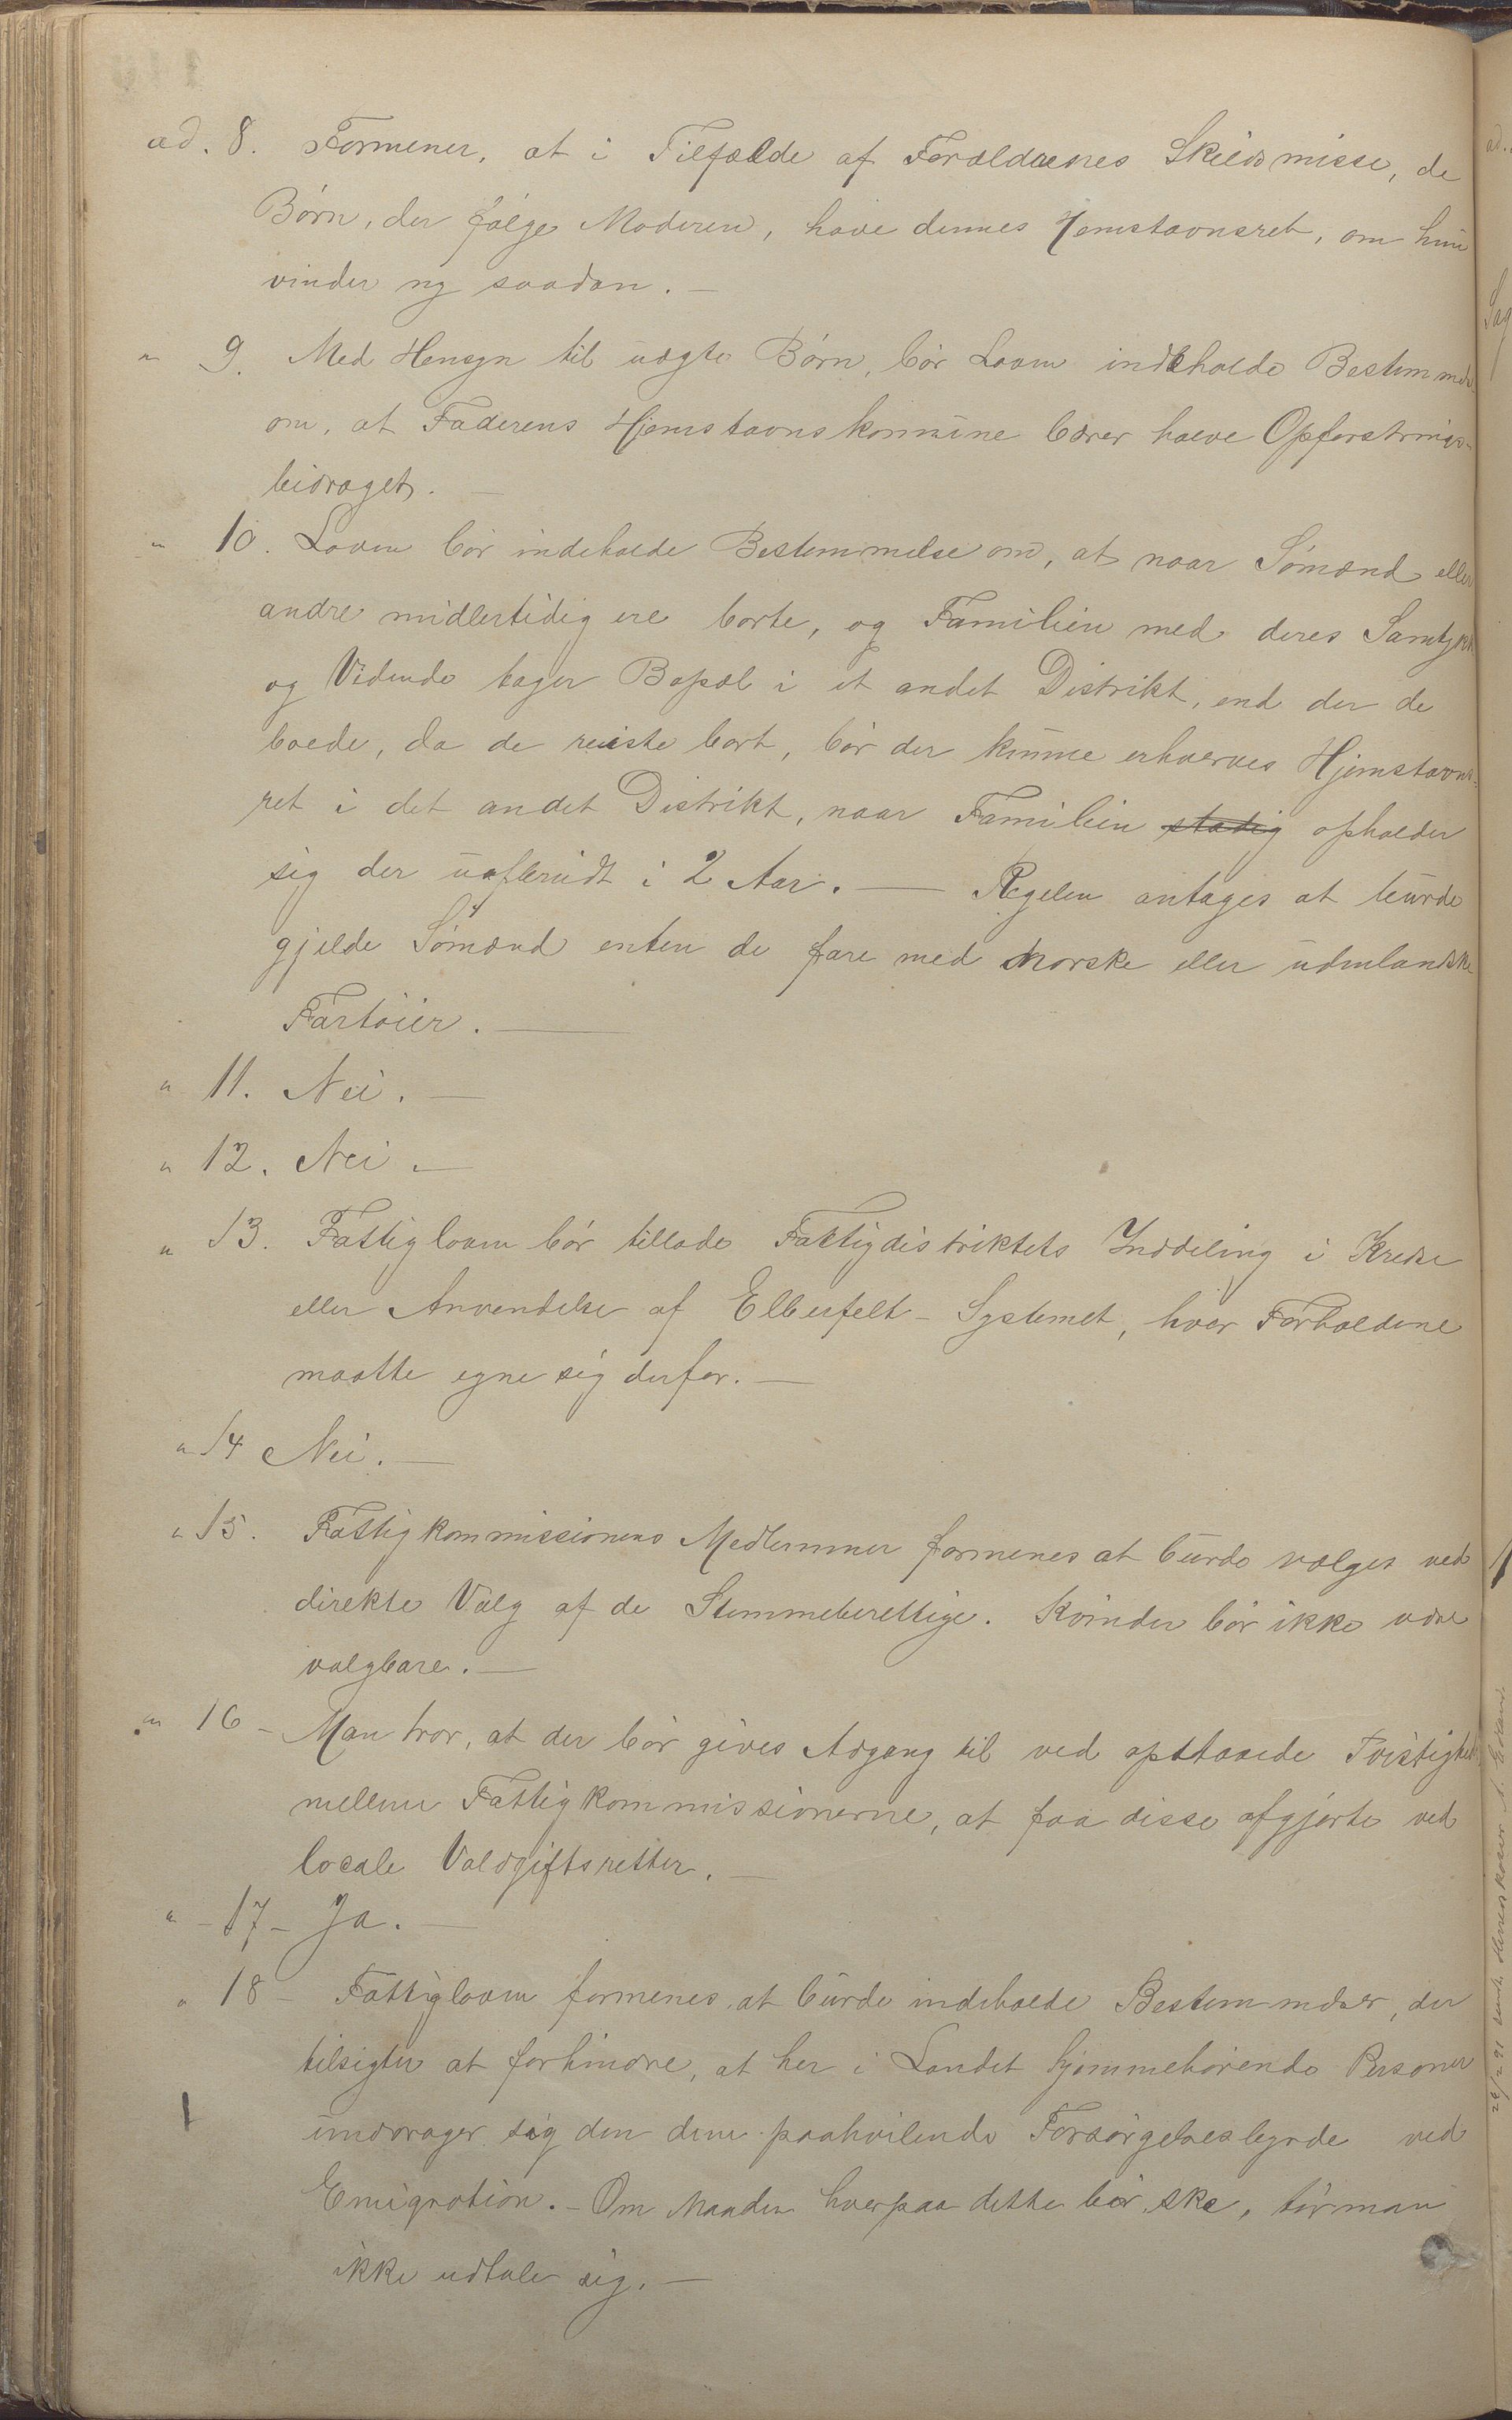 ad. 8. Formener, at i Tilfælde af Forældrenes Skilsmisse, de
Børn, der følge Moderen, have dennes Hjemstavnsret, om hun
vinder ny saadan. —
" 9. Med Hensyn til uægte Børn, bør Loven indeholde Bestemmelse
om, at Faderens Hjemstavnskommune bærer halve Opfostrings-
bidraget. —
" 10. Loven bør indeholde Bestemmelse om, at naar Sømænd eller
andre midlertidig ere borte, og Familien med deres Samtykke
og Vidende tager Bopæl i et andet Distrikt, end der de
boede, da de reiste bort, bør der kunne erhverves Hjemstavns-
ret i det andet Distrikt, naar Familien stadig opholder
sig der uafbrudt i 2 Aar. — Regelen antages at burde
gjelde Sømænd enten de fare med norske eller udenlandske
Fartøier. —
" 11. Nei. —
" 12. Nei. —
" 13. Fattigloven bør tillade Fattigdistriktets Inddeling i Kredse
eller Anvendelse af Elberfelt-Systemet, hvor Forholdene
maatte egne sig derfor. —
" 14 Nei. —
" 15. Fattigkommissionens Medlemmer formenes at burde vælges ved
direkte Valg af de Stemmeberettige. Kvinder bør ikke være
valgbare. —
" 16 - Man tror, at der bør gives Adgang til ved opstaaede Tvistighed
mellem Fattigkommissionerne, at faa disse afgjørte ved
locale Voldgiftsretter. —
" - 17 - Ja. —
" 18 - Fattigloven formenes at burde indeholde Bestemmelser, der
tilsigter at forhindre, at her i Landet hjemmehørende Personer
unddrager sig den dem paahvilende Forsørgelsesbyrde ved
Emigration. - Om Maaden hvorpaa dette bør ske, tør man
ikke udtale sig. —